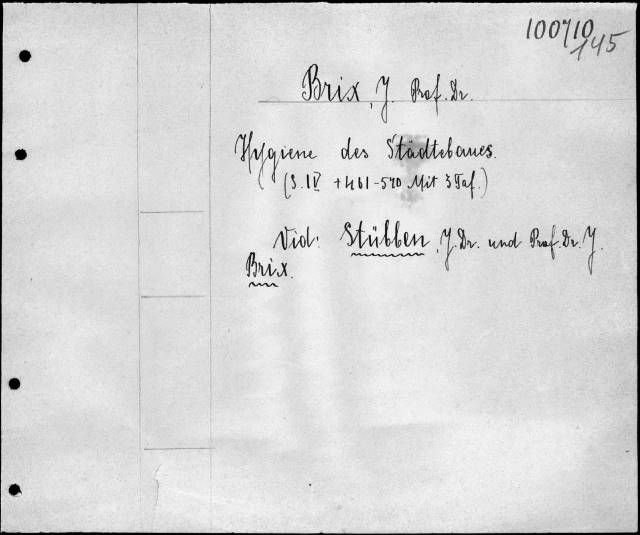 100710
145
Brix, J. Prof. Dr.
Hygiene des Städtebaues.
(S. IV + 461-570 Mit 3 Taf.)
Vid: Stübben, J. Dr. und Prof. Dr. J.
Brix.